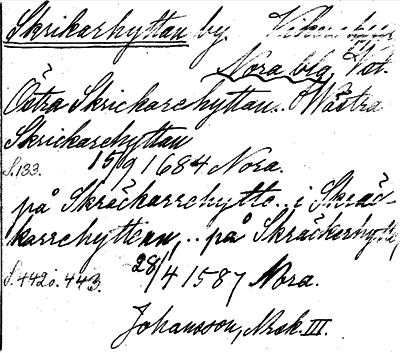 Skrikarhyttan by. Vikers
Nora blg, Vst.
Östra Skrickarehyttan. Wästra
Skrickarehyttan
S. 133. 15/9 1684 Nora.
på Skräckarrehytte.. i Skräc-
karrehyttenn,.. på Skräckerhytte,
S. 442 o. 443. 28/4 1587 Nora.
Johansson, Nrsk. III.